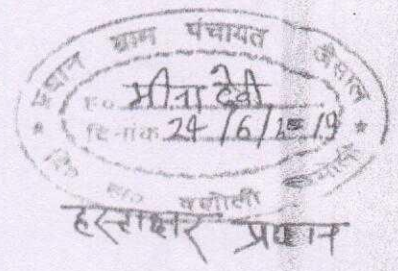 प्रधान ग्राम पंचायत जैसाल
मीना देवी
दिनांक 24/6/2019
हस्ताक्षर प्रधान